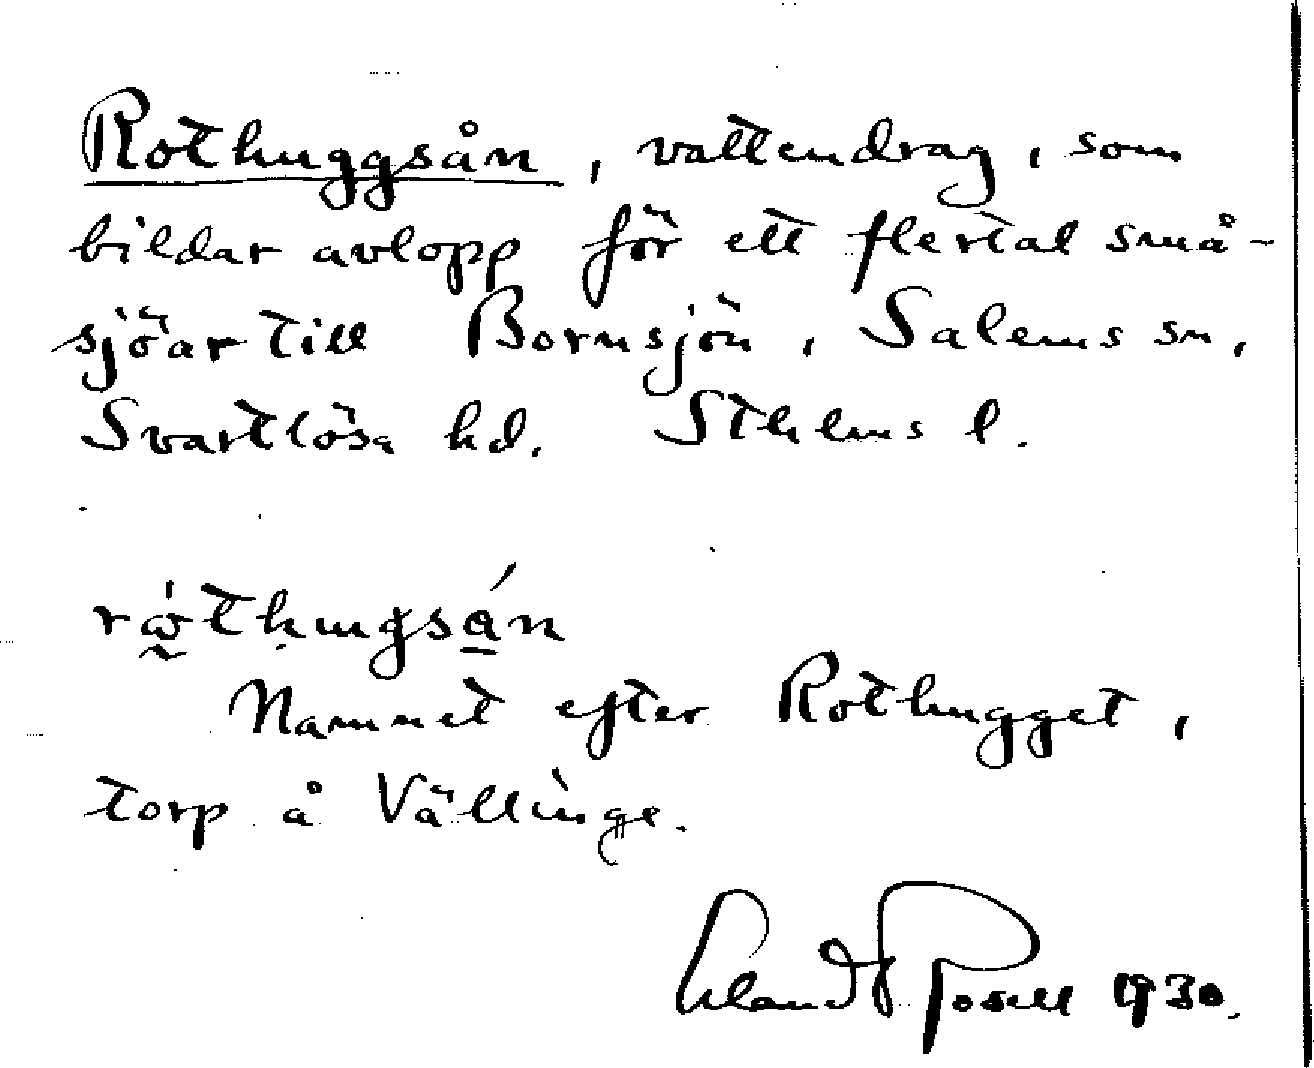 Rothuggsån, vattendrag, som
bildar avlopp för ett flertal små-
sjöar till Bornsjön, Salems sn,
Svartlösa hd. Sthlms l.
Namnet efter Rothugget,
torp å Vällinge.
Erland Rosell 1930.